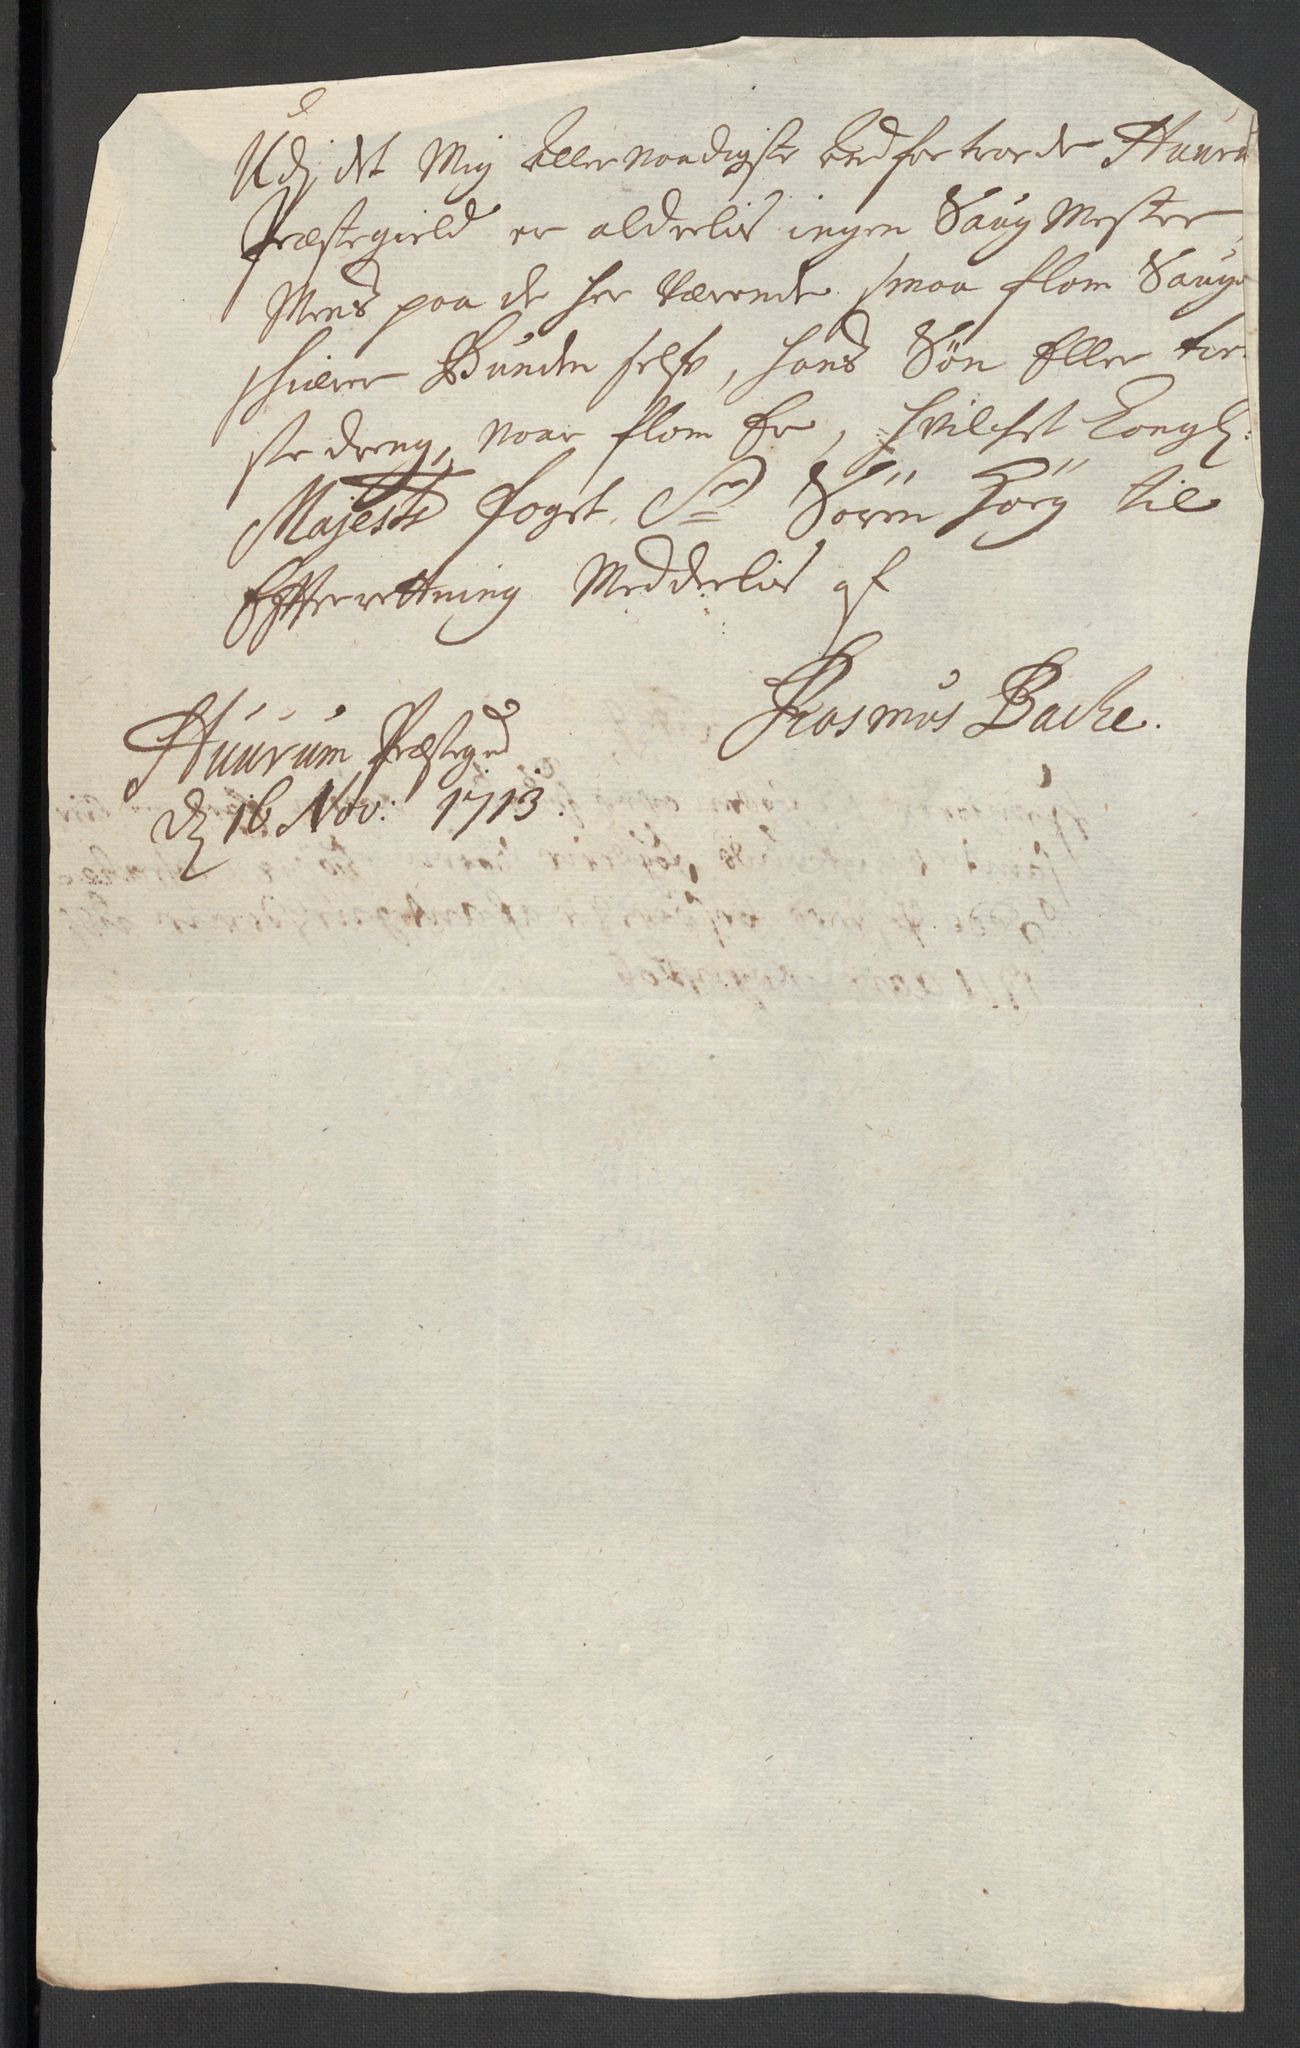 Udj det Mig Allernaadigste Anfortroede Huuru
Præstegield er alderlis ingen Saug Mester,
Mens paa de her værende smaa flom Sauge
schierer Bunden self, hans Søn Eller tie-
ste dreng, naar flom Er, hvilchet Kongl:
Majests foget Sr Søren Høeg til
Efterrettning Meddelis af
Rasmus Bache.
Huurum Præstegrd
d 16 Nov: 1713.